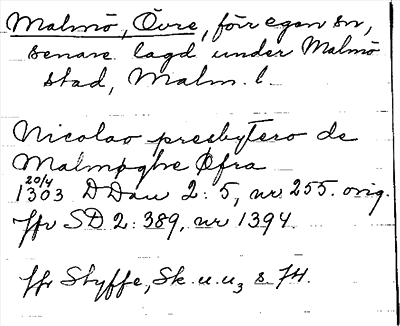 Malmö, Övre, förr egen sn,
senare lagd under Malmö
stad, Malm. l.
Nicolao presbytero de
Malmøghe Øfra
20/4
1303 DDan 2:5, nr 255. orig.
jfr SD 2:389, nr 1394.
jfr Styffe, Sk. u. u₃ s. 74.